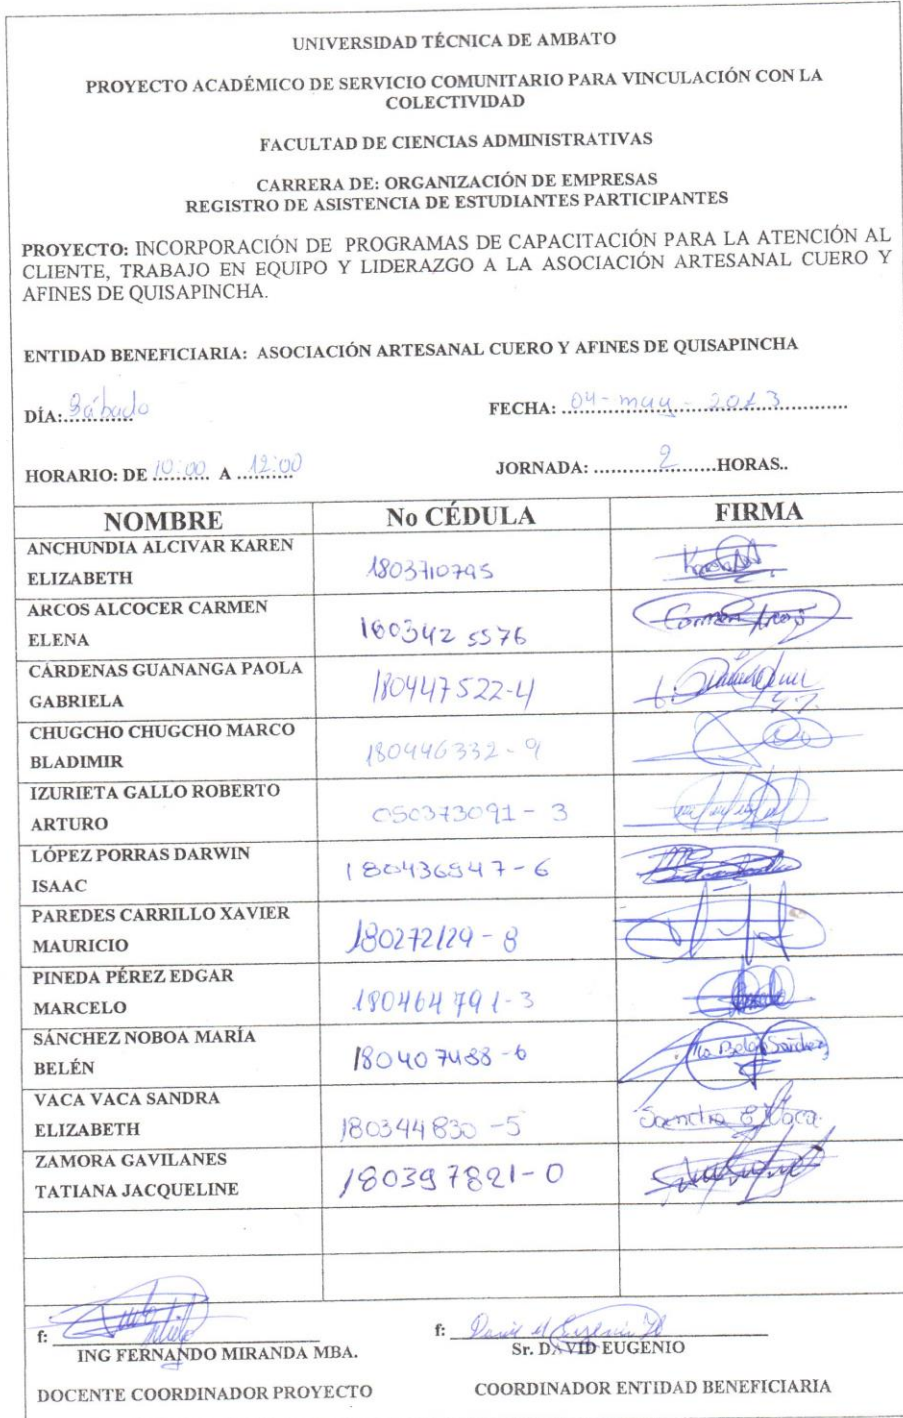 UNIVERSIDAD TÉCNICA DE AMBATO
PROYECTO ACADÉMICO DE SERVICIO COMUNITARIO PARA VINCULACIÓN CON LA
COLECTIVIDAD
FACULTAD DE CIENCIAS ADMINISTRATIVAS
CARRERA DE: ORGANIZACIÓN DE EMPRESAS
REGISTRO DE ASISTENCIA DE ESTUDIANTES PARTICIPANTES
PROYECTO: INCORPORACIÓN DE PROGRAMAS DE CAPACITACIÓN PARA LA ATENCIÓN AL
CLIENTE, TRABAJO EN EQUIPO Y LIDERAZGO A LA ASOCIACIÓN ARTESANAL CUERO Y
AFINES DE QUISAPINCHA.
ENTIDAD BENEFICIARIA: ASOCIACIÓN ARTESANAL CUERO Y AFINES DE QUISAPINCHA
DÍA: Sábado FECHA: 04-may-2013
HORARIO: DE 10:00 A 12:00 JORNADA: 2 HORAS..
NOMBRE No CÉDULA FIRMA
ANCHUNDIA ALCIVAR KAREN
ELIZABETH 1803710795
ARCOS ALCOCER CARMEN
ELENA 1803425576 Carmen Arcos
CÁRDENAS GUANANGA PAOLA
GABRIELA 180447522-4
CHUGCHO CHUGCHO MARCO
BLADIMIR 180446332-9
IZURIETA GALLO ROBERTO
ARTURO 050373091-3
LÓPEZ PORRAS DARWIN
ISAAC 180436947-6
PAREDES CARRILLO XAVIER
MAURICIO 180272129-8
PINEDA PÉREZ EDGAR
MARCELO 180464791-3
SÁNCHEZ NOBOA MARÍA
BELÉN 180407488-6 Ma Belén Sánchez
VACA VACA SANDRA
ELIZABETH 180344830-5 Sandra E Vaca
ZAMORA GAVILANES
TATIANA JACQUELINE 180397821-0
f: f: David Eugenio
ING FERNANDO MIRANDA MBA. Sr. DAVID EUGENIO
DOCENTE COORDINADOR PROYECTO COORDINADOR ENTIDAD BENEFICIARIA